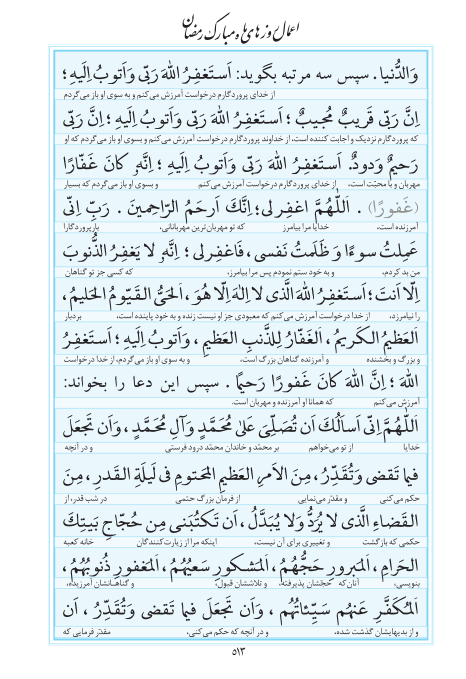 اعمال روزهای ماه مبارک رمضان
وَالدُّنیا. سپس سه مرتبه بگوید: اَستَغفِرُ اللهَ رَبّی وَاَتوبُ اِلَیهِ؛
از خدای پروردگارم درخواست آمرزش می‌کنم و به سوی او باز می‌گردم
اِنَّ رَبّی قَریبٌ مُجیبٌ؛ اَستَغفِرُ اللهَ رَبّی وَاَتوبُ اِلَیهِ؛ اِنَّ رَبّی
که پروردگارم نزدیک و اجابت کننده است، از خداوند پروردگارم درخواست آمرزش می‌کنم و بسوی او باز می‌گردم که او
رَحیمٌ وَدودٌ. اَستَغفِرُ اللهَ رَبّی وَاَتوبُ اِلَیهِ؛ اِنَّهُ کانَ غَفّارًا
مهربان و با محبّت است، از خدای پروردگارم درخواست آمرزش می‌کنم و بسوی او باز می‌گردم که بسیار
(غَفورًا). اَللّٰهُمَّ اغفِرلی؛ اِنَّکَ اَرحَمُ الرّاحِمینَ. رَبِّ اِنّی
آمرزنده است، خدایا مرا بیامرز که تو مهربان‌ترین مهربانانی، بارپروردگارا
عَمِلتُ سوءًا وَ ظَلَمتُ نَفسی، فَاغفِرلی؛ اِنَّهُ لا یَغفِرُ الذُّنوبَ
من بد کردم، و به خود ستم نمودم پس مرا بیامرز، که کسی جز تو گناهان
اِلّا اَنتَ؛ اَستَغفِرُ اللهَ الَّذی لا اِلٰهَ اِلّا هُوَ، اَلحَیُّ القَیّومُ الحَلیمُ،
را نیامرزد، از خدا درخواست آمرزش می‌کنم که معبودی جز او نیست زنده و به خود پاینده است، بردبار
اَلعَظیمُ الکَریمُ، اَلغَفّارُ لِلذَّنبِ العَظیمِ، وَاَتوبُ اِلَیهِ؛ اَستَغفِرُ
و بزرگ و بخشنده و آمرزنده گناهان بزرگ است، و به سوی او باز می‌گردم، از خدا درخواست
اللهَ؛ اِنَّ اللهَ کانَ غَفورًا رَحیمًا. سپس این دعا را بخواند:
آمرزش می‌کنم که همانا او آمرزنده و مهربان است.
اَللّٰهُمَّ اِنّی اَسأَلُکَ اَن تُصَلِّیَ عَلیٰ مُحَمَّدٍ وَآلِ مُحَمَّدٍ، وَاَن تَجعَلَ
خدایا از تو می‌خواهم بر محمّد و خاندان محمّد درود فرستی و در آنچه
فیما تَقضی وَتُقَدِّرُ، مِنَ الاَمرِ العَظیمِ المَحتومِ فی لَیلَةِ القَدرِ، مِنَ
حکم می‌کنی و مقدّر می‌نمایی از فرمان بزرگ حتمی در شب قدر، از
القَضاءِ الَّذی لا یُرَدُّ وَلا یُبَدَّلُ، اَن تَکتُبَنی مِن حُجّاجِ بَیتِکَ
حکمی که بازگشت و تغییری برای آن نیست، اینکه مرا از زیارت‌کنندگان خانه کعبه
الحَرامِ، اَلمَبرورِ حَجُّهُم، اَلمَشکورِ سَعیُهُم، اَلمَغفورِ ذُنوبُهُم،
بنویسی، آنان که حجّشان پذیرفته، و تلاششان قبول، و گناهانشان آمرزیده،
اَلمُکَفَّرِ عَنهُم سَیِّئاتُهُم، وَاَن تَجعَلَ فیما تَقضی وَتُقَدِّرُ، اَن
و از بدیهایشان گذشت شده، و در آنچه که حکم می‌کنی، مقدّر فرمایی که
۵۱۳